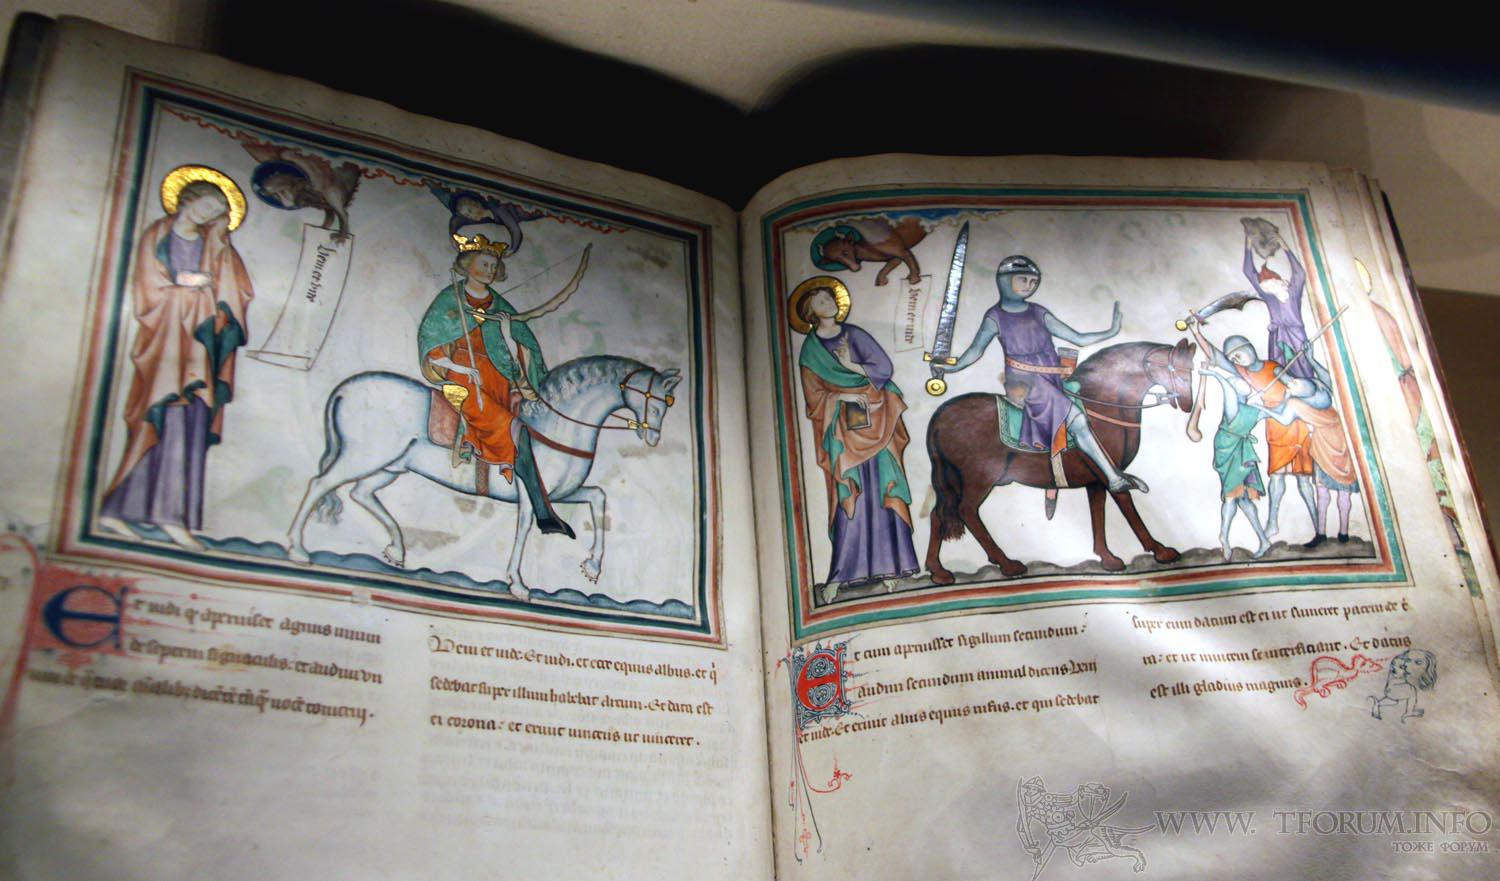 Veni et vide
Et vidi q aperuisset agnus unum
de septem signaculis: et audivi un
Veni et vide: Et vidi. et ecce equus albus. et q
sedebat super illum habebat arcum. Et data est
ei corona: et exivit vincens ut vinceret.
veni et vide
Et cum aperuisset sigillum secundum:
audivi secundum animal dicens Veni
et vide: Et exivit alius equus rufus. et qui sedebat
super eum datum est ei ut sumeret pacem de t
ra: et ut invicem se interficiant. Et datus
est illi gladius magnus.
WWW. TFORUM.INFO
ТОЖЕ ФОРУМ